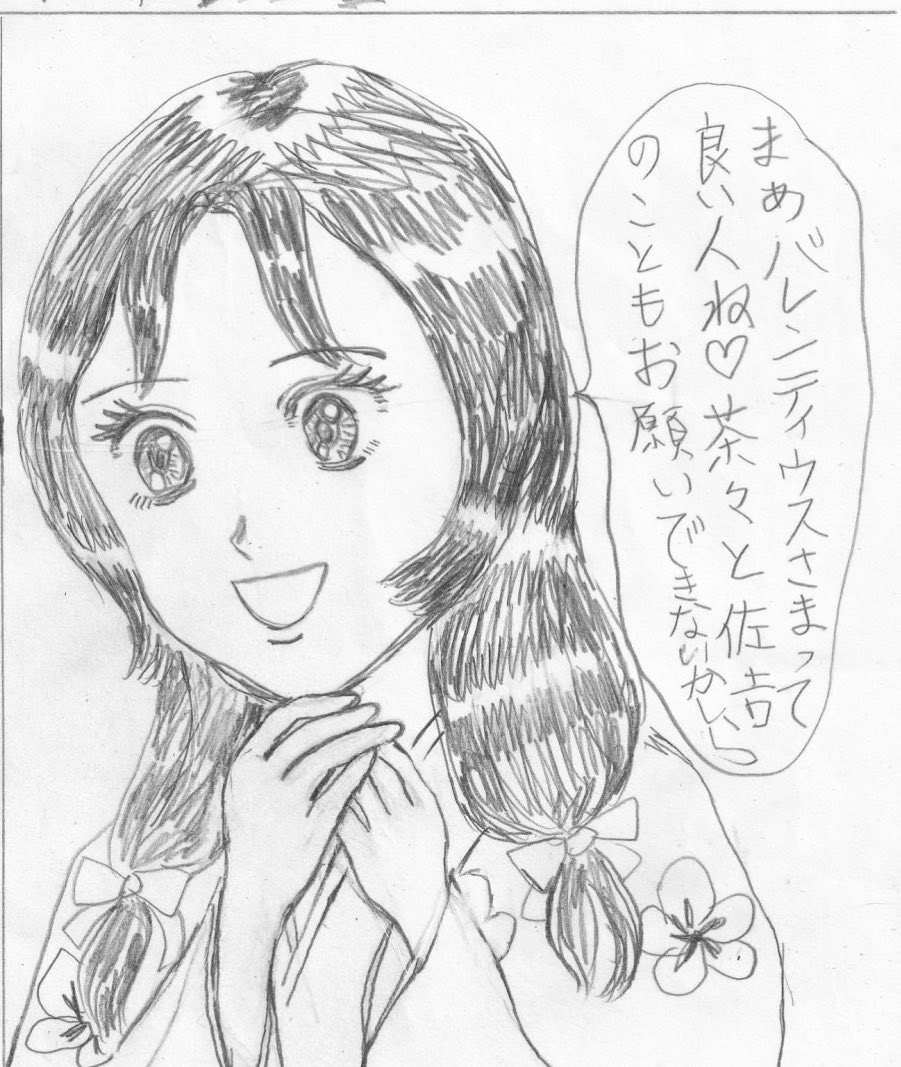 まぁバレンティウスさまって
良い人ね♡茶々と佐吉
のこともお願いできないかしら